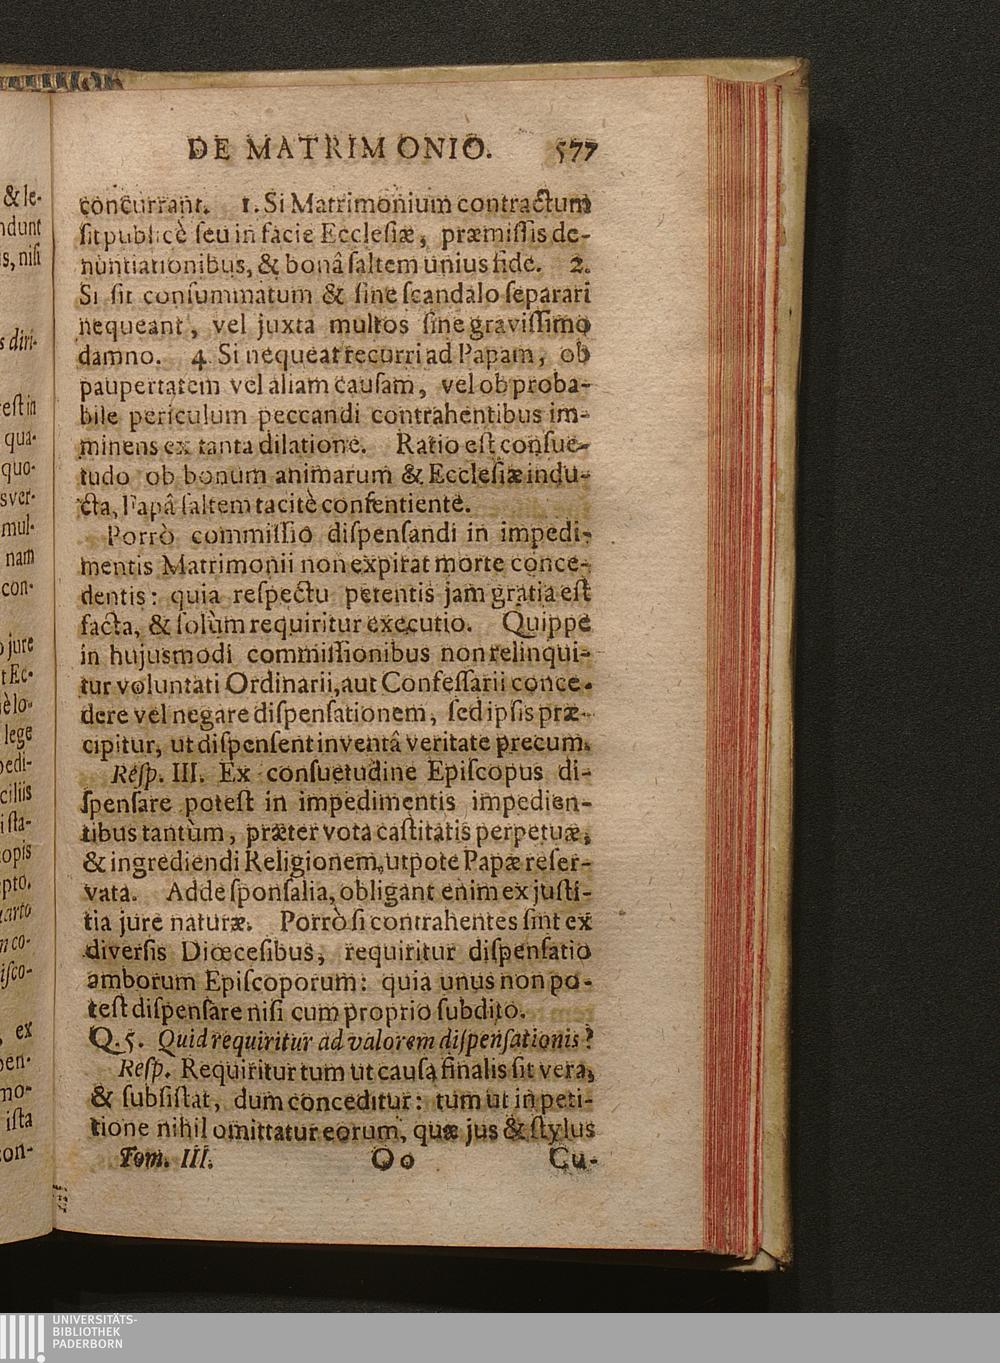 DE MATRIMONIO. 577
concurrant. 1. Si Matrimonium contractum
sit publicè seu in facie Ecclesiæ, præmissis de-
nuntiationibus, & bonâ saltem unius fide. 2.
Si sit consummatum & sine scandalo separari
nequeant, vel juxta multos sine gravissimo
damno. 4 Si nequeat recurri ad Papam, ob
paupertatem vel aliam causam, vel ob proba-
bile periculum peccandi contrahentibus im-
minens ex tanta dilatione. Ratio est consue-
tudo ob bonum animarum & Ecclesiæ indu-
cta, Papâ saltem tacitè consentiente.
Porrò commissio dispensandi in impedi-
mentis Matrimonii non expirat morte conce-
dentis: quia respectu petentis jam gratia est
facta, & solùm requiritur executio. Quippe
in hujusmodi commissionibus non relinqui-
tur voluntati Ordinarii, aut Confessarii conce-
dere vel negare dispensationem, sed ipsis præ-
cipitur, ut dispensent inventâ veritate precum.
Resp. III. Ex consuetudine Episcopus di-
spensare potest in impedimentis impedien-
tibus tantùm, præter vota castitatis perpetuæ,
& ingrediendi Religionem, utpote Papæ reser-
vata. Adde sponsalia, obligant enim ex justi-
tia jure naturæ. Porrò si contrahentes sint ex
diversis Diœcesibus, requiritur dispensatio
amborum Episcoporum: quia unus non po-
test dispensare nisi cum proprio subdito.
Q. 5. Quid requiritur ad valorem dispensationis?
Resp. Requiritur tum ut causa finalis sit vera,
& subsistat, dum conceditur: tum ut in peti-
tione nihil omittatur eorum, quæ jus & stylus
Tom. III. Oo Cu-
& le-
ndunt
s, nisi
s diri-
est in
qua-
quo-
sver-
mul-
nam
con-
o jure
t Ec-
lo-
lege
pedi-
ciliis
i sta-
opis
pto.
uarto
n co-
isco-
, ex
pen-
mo-
ista
con-
UNIVERSITÄTS-
BIBLIOTHEK
PADERBORN